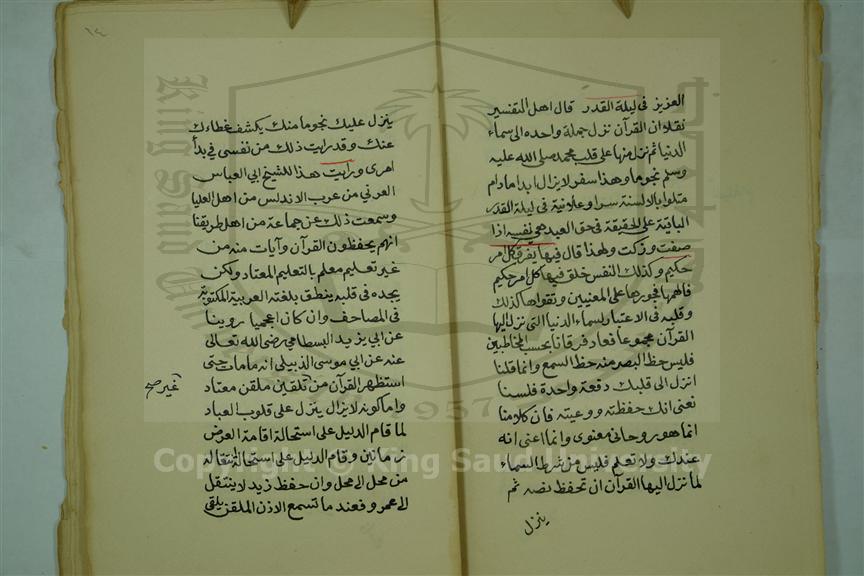 العزيز فى ليلة القدر قال اهل التفسير
نقلا ان القرآن نزل جملة واحده الى سماء
الدنيا ثم نزل منها على قلب محمد صلى الله عليه
وسلم نجوما وهذا سفر لا يزال ابدا مادام
متلوا بالالسنة سرا وعلانية فى ليلة القدر
الباقية على الحقيقة فى حق العبد هى نفسه اذا
صفت وزكت ولهذا قال فيها يفرق كل امر
حكيم وكذلك النفس خلق فيها كل امر حكيم
فالهمها فجورها على المعنيين وتقواها كذلك
وقلبه فى الاعتبار لسماء الدنيا التى نزل اليها
القرآن مجموعا فعاد فرقانا بحسب المخاطبين
فليس حظ البصر منه حظ السمع وانما قلنا
انزل الى قلبك دفعة واحدة فلسنا
نعنى انك حفظته ووعيته فان كلامنا
انما هو روحانى معنوى وانما اعنى انه
عندك ولا تعلم فليس من شرط السماء
لما نزل اليها القرآن ان تحفظ نصه ثم
ينزل
١٤
ينزل عليك نجوما منك يكشف غطاءك
عنك وقد رايت ذلك من نفسى فى بدأ
امرى ورايت هذا للشيخ ابى العباس
العرنى من عرب الاندلس من اهل العليا
وسمعت ذلك عن جماعة من اهل طريقنا
انهم يحفظون القرآن وآيات منه من
غير تعليم معلم بالتعليم المعتاد ولكن
يجده فى قلبه ينطق بلغته العربية المكتوبة
فى المصاحف وان كان اعجميا روينا
عن ابى يزيد البسطامى رضى الله تعالى
عنه عن ابى موسى الدبيلى انه ما مات حتى
استظهر القرآن من تلقين ملقن معتاد
غير صح
واما كونه لا يزال ينزل على قلوب العباد
لما قام الدليل على استحالة اقامة العرض
زمانين وقام الدليل على استحالة انتقاله
من محل الى محل وان حفظ زيد لا ينتقل
الى عمرو فعند ما تسمع الاذن الملقن يلقى
King Saud University
1957
Copyright © King Saud University